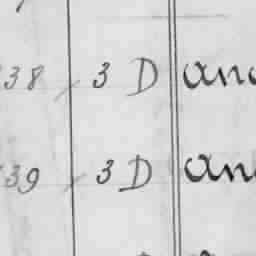 38 3 D and
39 3 D an